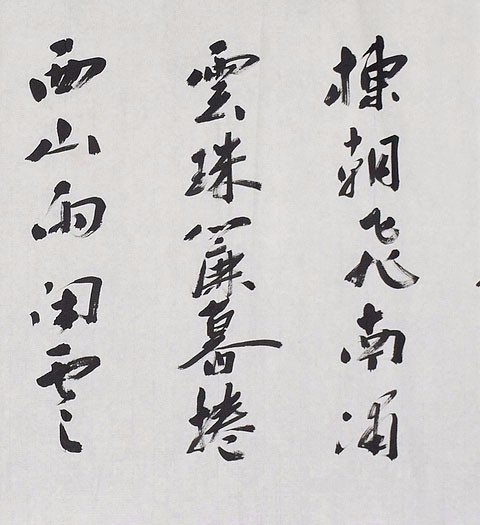 棟朝飛南浦
雲珠簾暮捲
西山雨閑雲